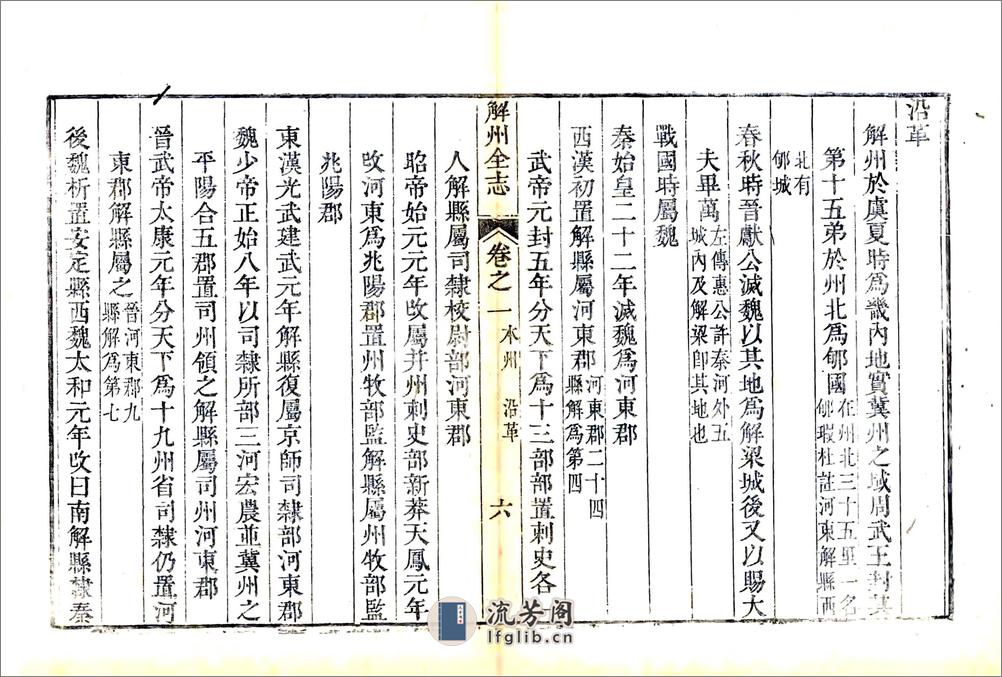 沿革
解州於虞夏時爲畿內地實冀州之域周武王封其
第十五弟於州北爲郇國在州北三十五里一名
郇瑕杜註河東解縣西
北有
郇城
春秋時晉獻公滅魏以其地爲解梁城後又以賜大
夫畢萬左傳惠公許秦河外五
城內及解梁卽其地也
戰國時屬魏
秦始皇二十二年滅魏爲河東郡
西漢初置解縣屬河東郡河東郡二十四
縣解爲第四
武帝元封五年分天下爲十三部部置刺史各一
解州全志
卷之一
本州 沿革
六
人解縣屬司隸校尉部河東郡
昭帝始元元年改屬并州刺史部新莽天鳳元年
改河東爲兆陽郡置州牧部監解縣屬州牧部監
兆陽郡
東漢光武建武元年解縣復屬京師司隸部河東郡
魏少帝正始八年以司隸所部三河宏農並冀州之
平陽合五郡置司州領之解縣屬司州河東郡
晉武帝太康元年分天下爲十九州省司隸仍置河
東郡解縣屬之晉河東郡九
縣解爲第七
後魏析置安定縣西魏太和元年改曰南解縣隸秦
流芳阁
lfglib.cn